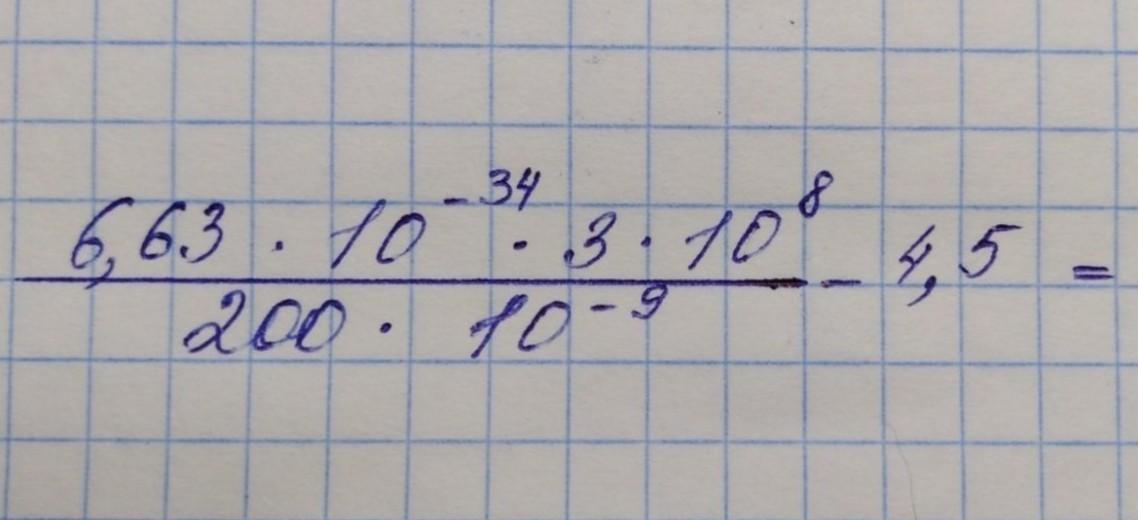 6,63 · 10⁻³⁴ · 3 · 10⁸
200 · 10⁻⁹
- 4,5 =